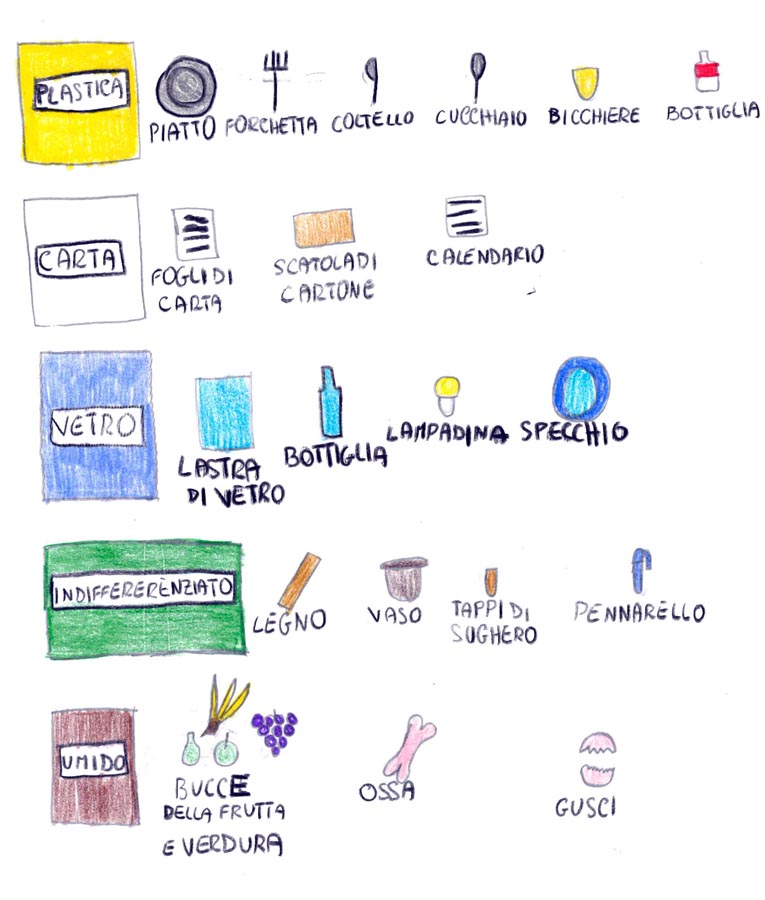 PLASTICA
PIATTO
FORCHETTA
COLTELLO
CUCCHIAIO
BICCHIERE
BOTTIGLIA
CARTA
FOGLI DI
CARTA
SCATOLA DI
CARTONE
CALENDARIO
VETRO
LASTRA
DI VETRO
BOTTIGLIA
LAMPADINA
SPECCHIO
INDIFFERERENZIATO
LEGNO
VASO
TAPPI DI
SUGHERO
PENNARELLO
UMIDO
BUCCE
DELLA FRUTTA
E VERDURA
OSSA
GUSCI